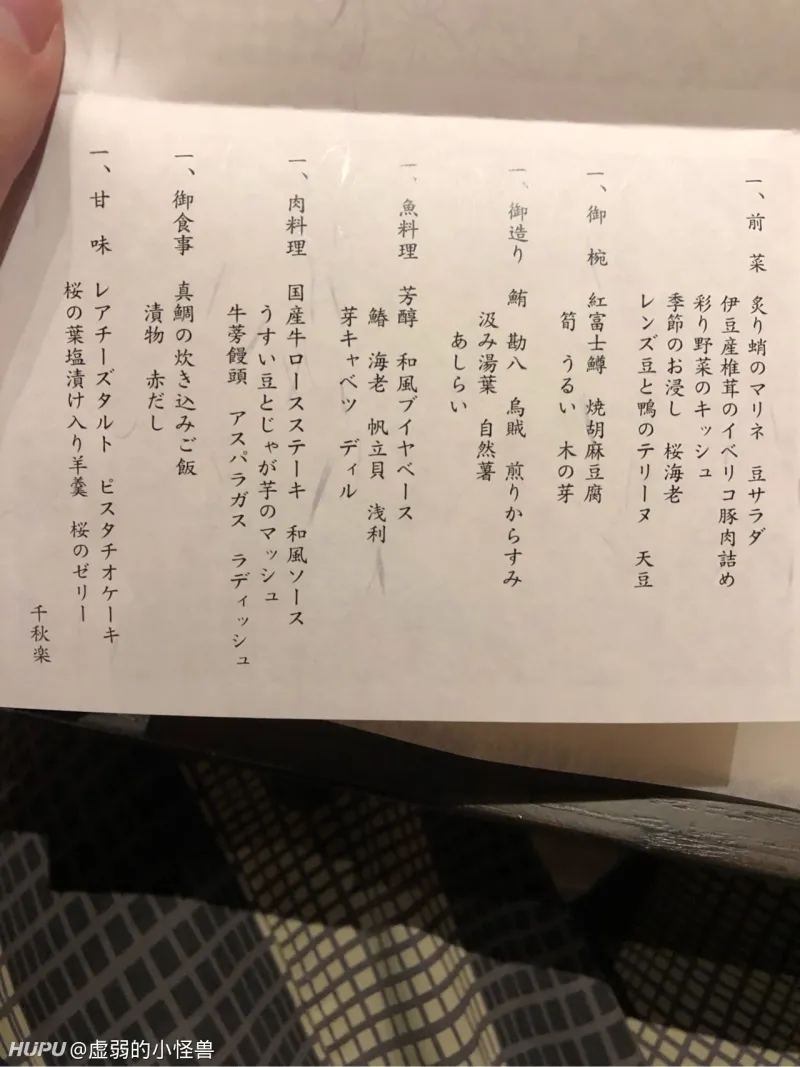 一、前菜 炙り蛸のマリネ 豆サラダ
伊豆産椎茸のイベリコ豚肉詰め
彩り野菜のキッシュ
季節のお浸し 桜海老
レンズ豆と鴨のテリーヌ 天豆
一、御椀 紅富士鱒 焼胡麻豆腐
筍 うるい 木の芽
一、御造り 鮪 勘八 烏賊 煎りからすみ
汲み湯葉 自然薯
あしらい
一、魚料理 芳醇 和風ブイヤベース
鰆 海老 帆立貝 浅利
芽キャベツ ディル
一、肉料理 国産牛ロースステーキ 和風ソース
うすい豆とじゃが芋のマッシュ
牛蒡饅頭 アスパラガス ラディッシュ
一、御食事 真鯛の炊き込みご飯
漬物 赤だし
一、甘味 レアチーズタルト ピスタチオケーキ
桜の葉塩漬け入り羊羹 桜のゼリー
千秋楽
HUPU @虚弱的小怪兽